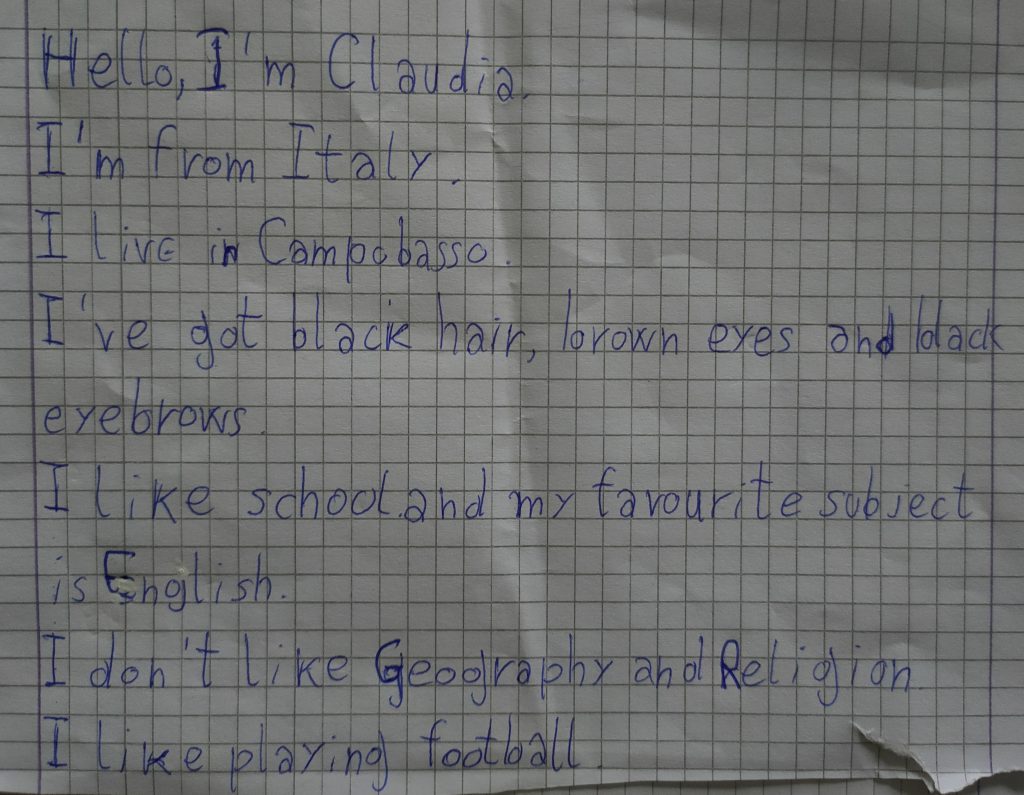 Hello, I'm Claudia.
I'm from Italy.
I live in Campobasso.
I've got black hair, brown eyes and black
eyebrows.
I like school and my favourite subject
is English.
I don't like Geography and Religion.
I like playing football.